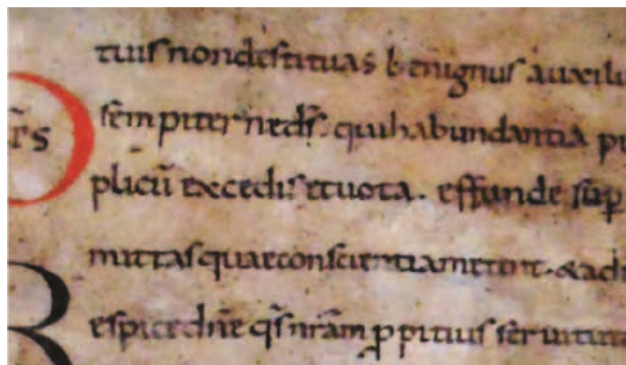 tuis non destituas benignus auxili
O r̄s sempiterne d̄s. qui habundantia pi
plicū excedis et uota. effunde sup̄
mittas quae conscientia metuit. & adi
Respice dn̄e q̄s nr̄am ꝓpitius seruitut